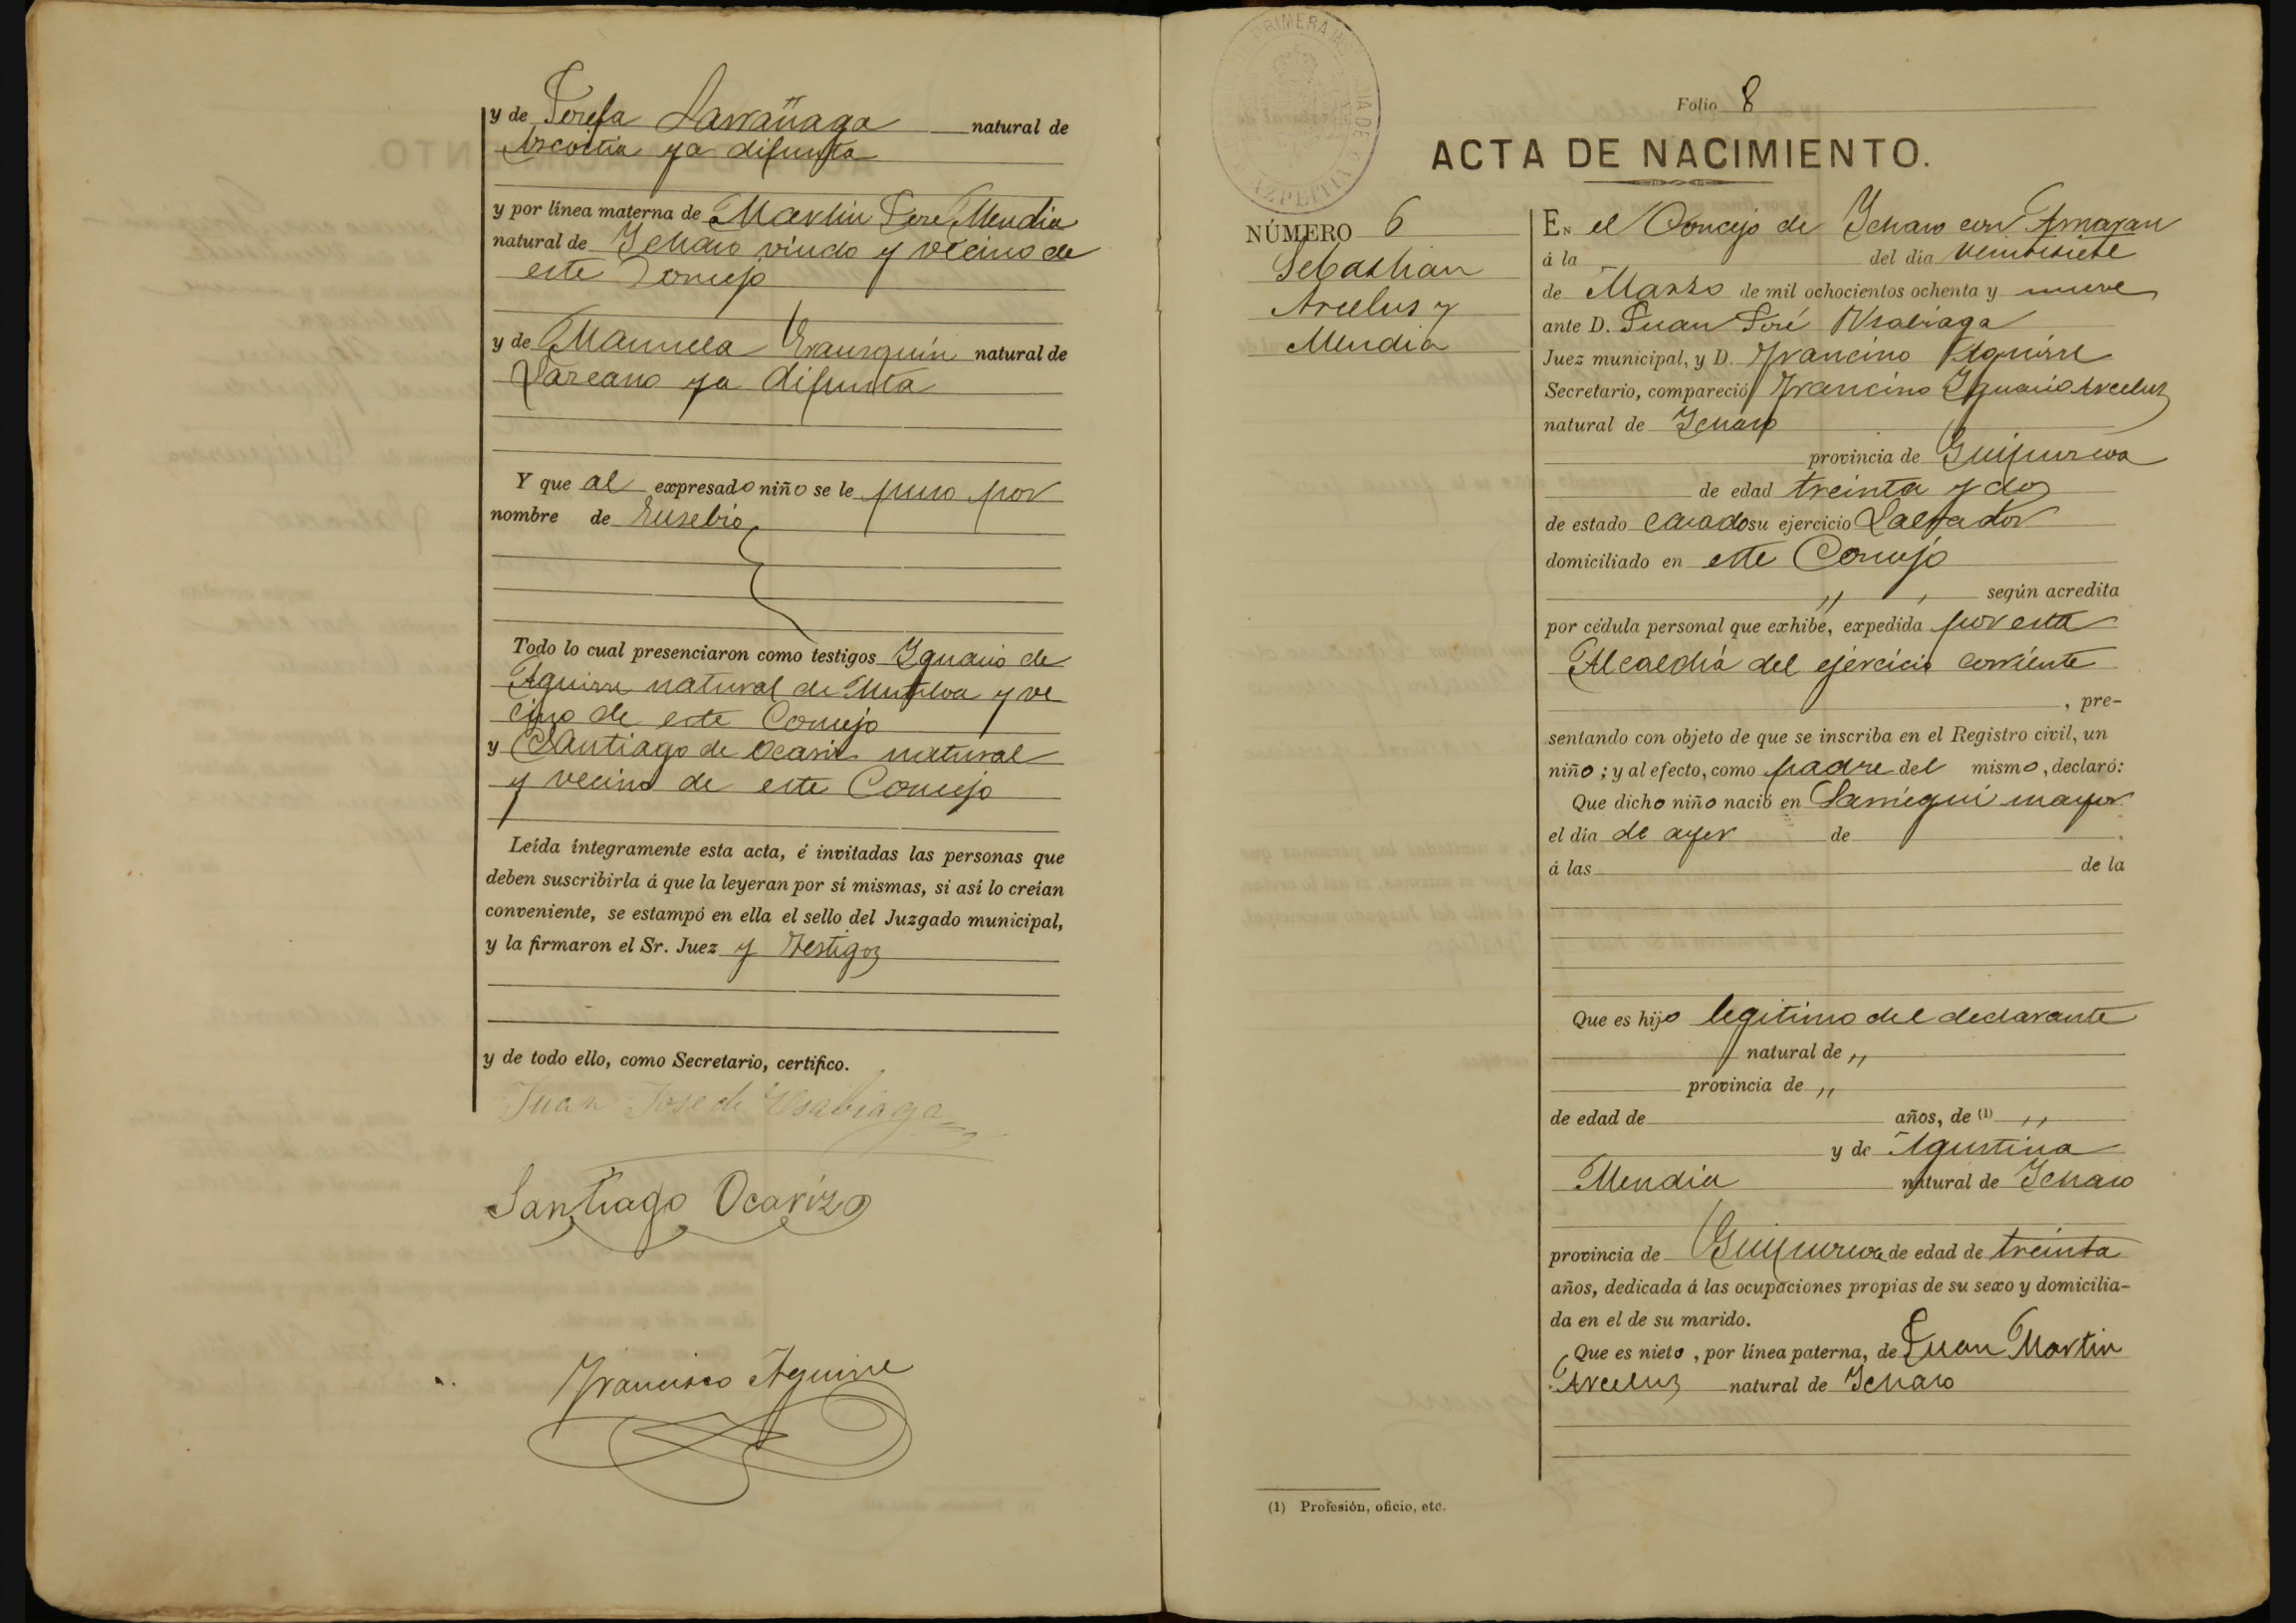 y de Josefa Larrañaga natural de
Azcoitia ya difunta
y por línea materna de Martin José Mendia
natural de Ichaso viudo y vecino de
este Concejo
y de Manuela Yrausquin natural de
Lazcano ya difunta
Y que al expresado niño se le puso por
nombre de Eusebio
Todo lo cual presenciaron como testigos Ignacio de
Aguirre natural de Mutiloa y ve
cino de este Concejo
y Santiago de Ocariz natural
y vecino de este Concejo
Leída íntegramente esta acta, é invitadas las personas que
deben suscribirla á que la leyeran por sí mismas, si así lo creían
conveniente, se estampó en ella el sello del Juzgado municipal,
y la firmaron el Sr. Juez y Testigos
y de todo ello, como Secretario, certifico.
Juan José de Usabiaga
Santiago Ocariz
Francisco Aguirre
Folio 8
ACTA DE NACIMIENTO.
NÚMERO 6
Sebastian
Arcelus y
Mendia
En el Concejo de Ichaso con Arriaran
á la del día veintisiete
de Marzo de mil ochocientos ochenta y nueve
ante D. Juan José Usabiaga
Juez municipal, y D. Francisco Aguirre
Secretario, compareció Francisco Ignacio Arcelus
natural de Ichaso
provincia de Guipuzcoa
de edad treinta y dos
de estado casado su ejercicio Labrador
domiciliado en este Concejo
,, , según acredita
por cédula personal que exhibe, expedida por esta
Alcaldia del ejercicio corriente
, pre-
sentando con objeto de que se inscriba en el Registro civil, un
niño; y al efecto, como padre del mismo, declaró:
Que dicho niño nació en Sarriegui mayor
el día de ayer de .
á las de la
Que es hijo legitimo del declarante
natural de ,,
provincia de ,,
de edad de años, de (1) ,,
y de Agustina
Mendia natural de Ichaso
provincia de Guipuzcoa de edad de treinta
años, dedicada á las ocupaciones propias de su sexo y domicilia-
da en el de su marido.
Que es nieto, por línea paterna, de Juan Martin
Arcelus natural de Ichaso
(1) Profesión, oficio, etc.